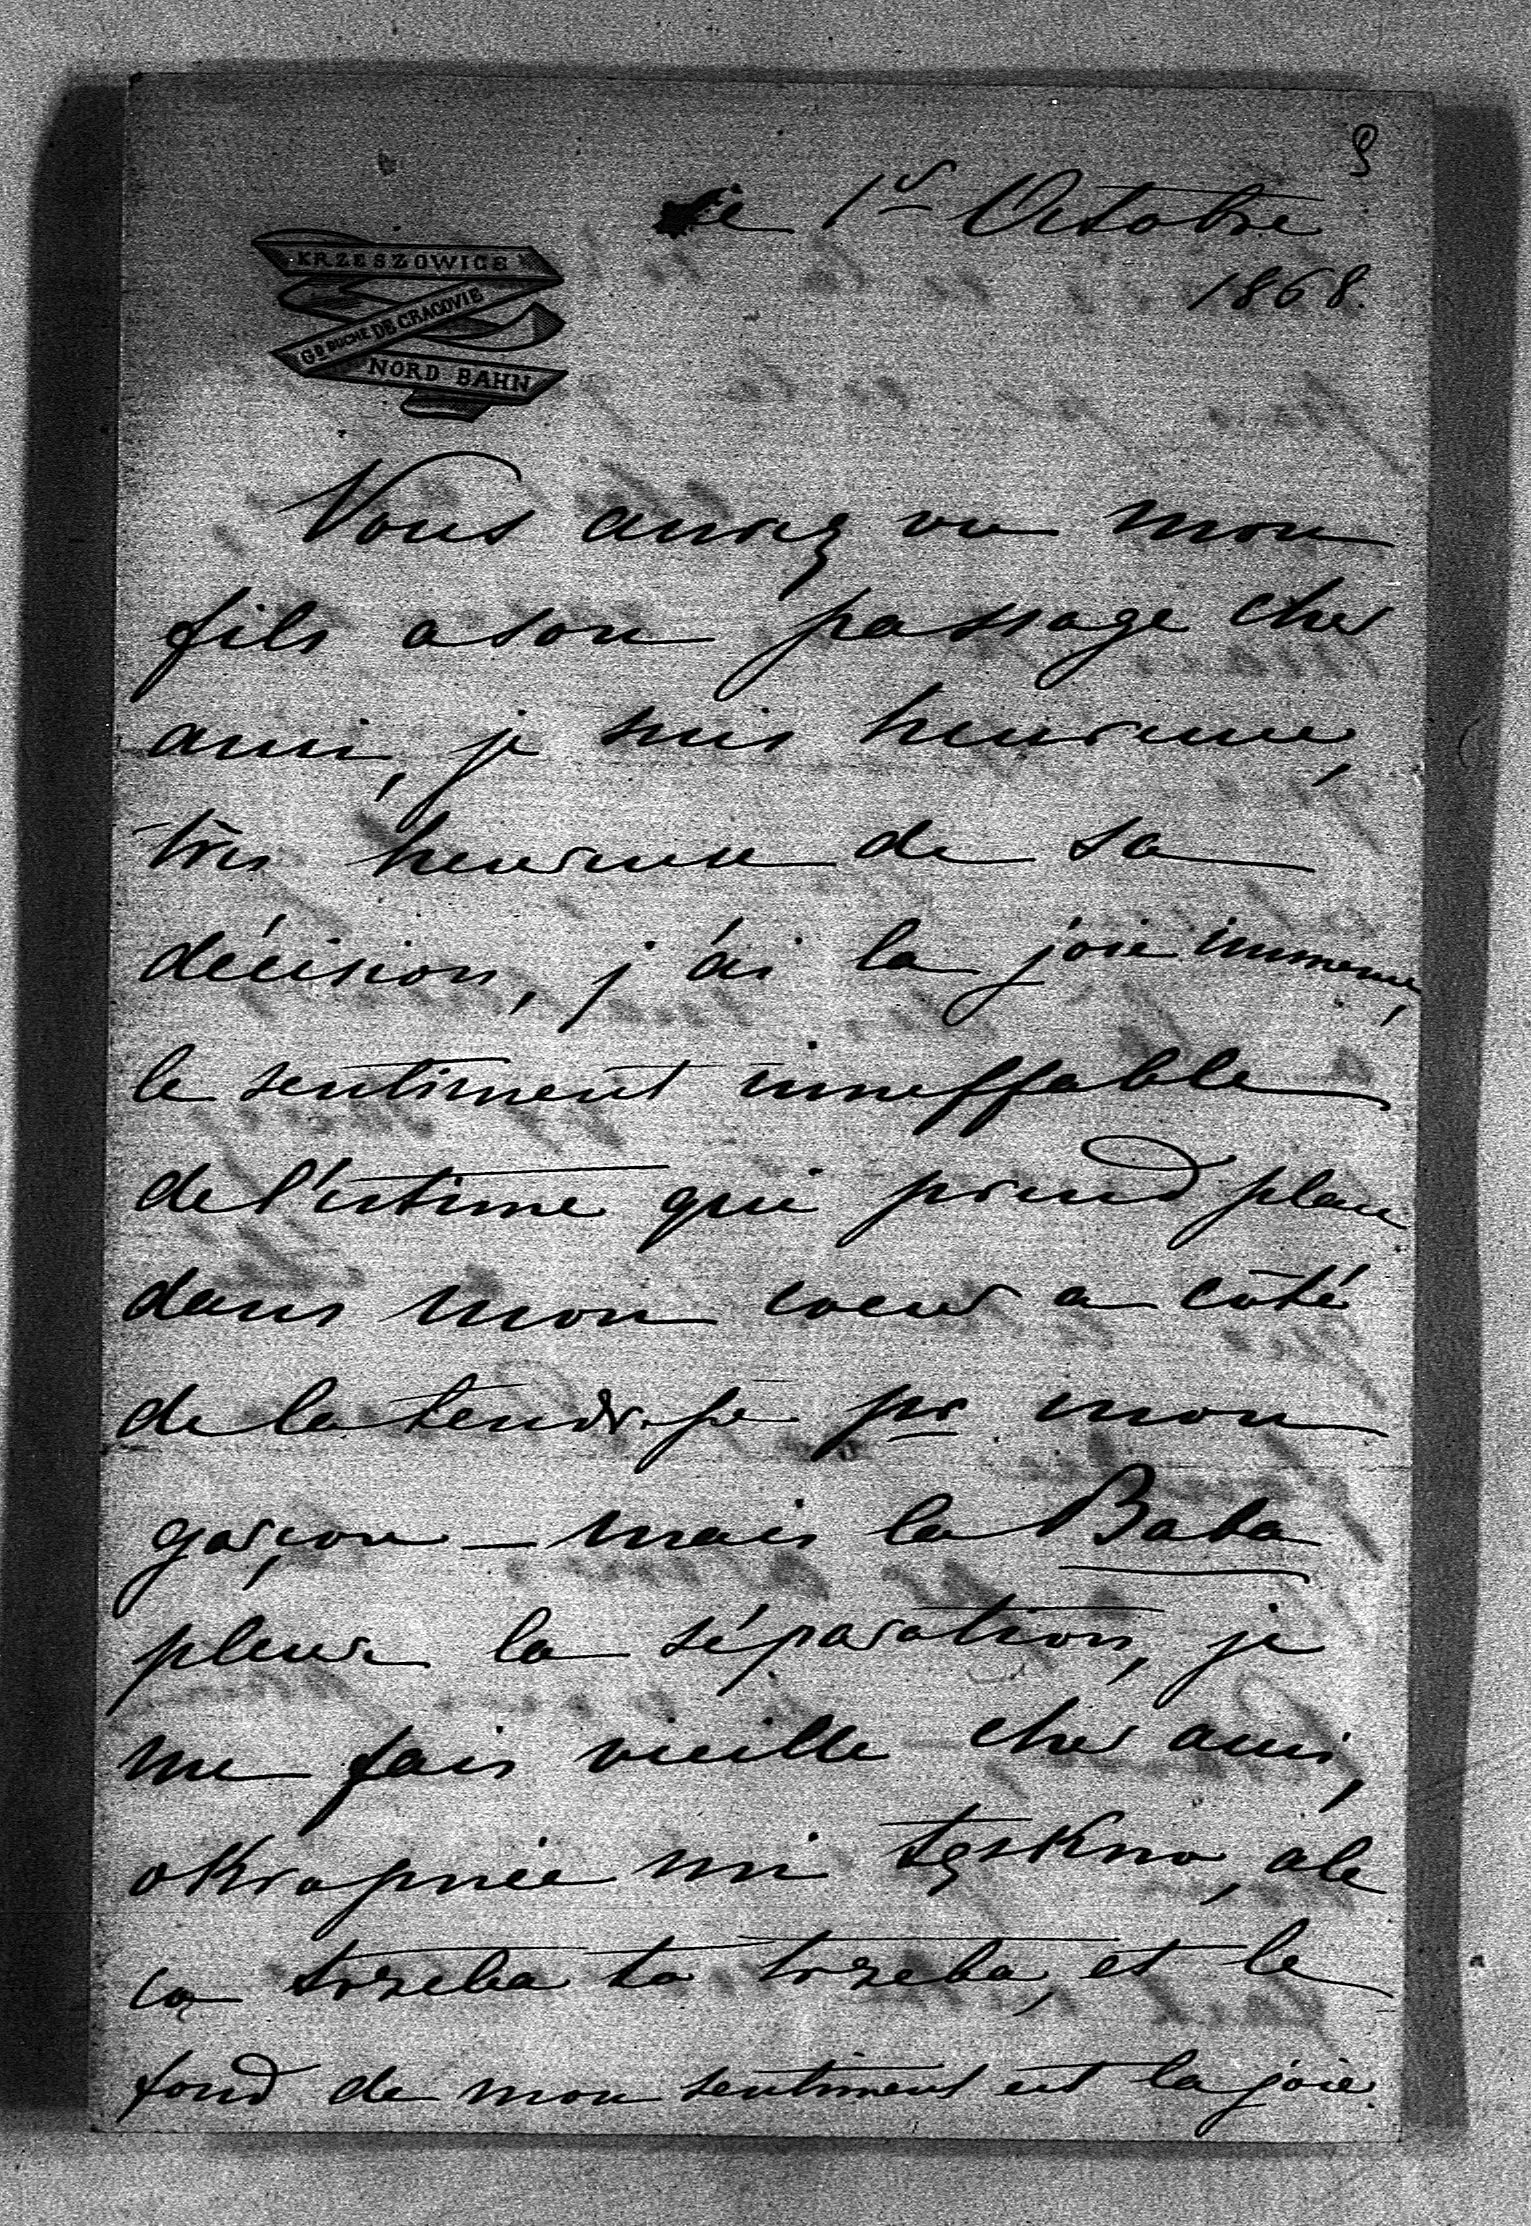 9
le 1r Octobre
1868.
KRZESZOWICE
GD DUCHÉ DE CRACOVIE
NORD BAHN
Vous aurez vu mon
fils a son passage cher
ami, je suis heureuse,
très heureuse de sa
décision, j'ai la joie immense,
le sentiment inneffable
de l'estime qui prend place
dans mon coeur a côté
de la tendresse pr mon
garçon – mais la Baba
pleure la séparation, je
me fais vieille cher ami,
okropnie mi tęskno, ale
co trzeba to trzeba, et le
fond de mon sentiment est la joie